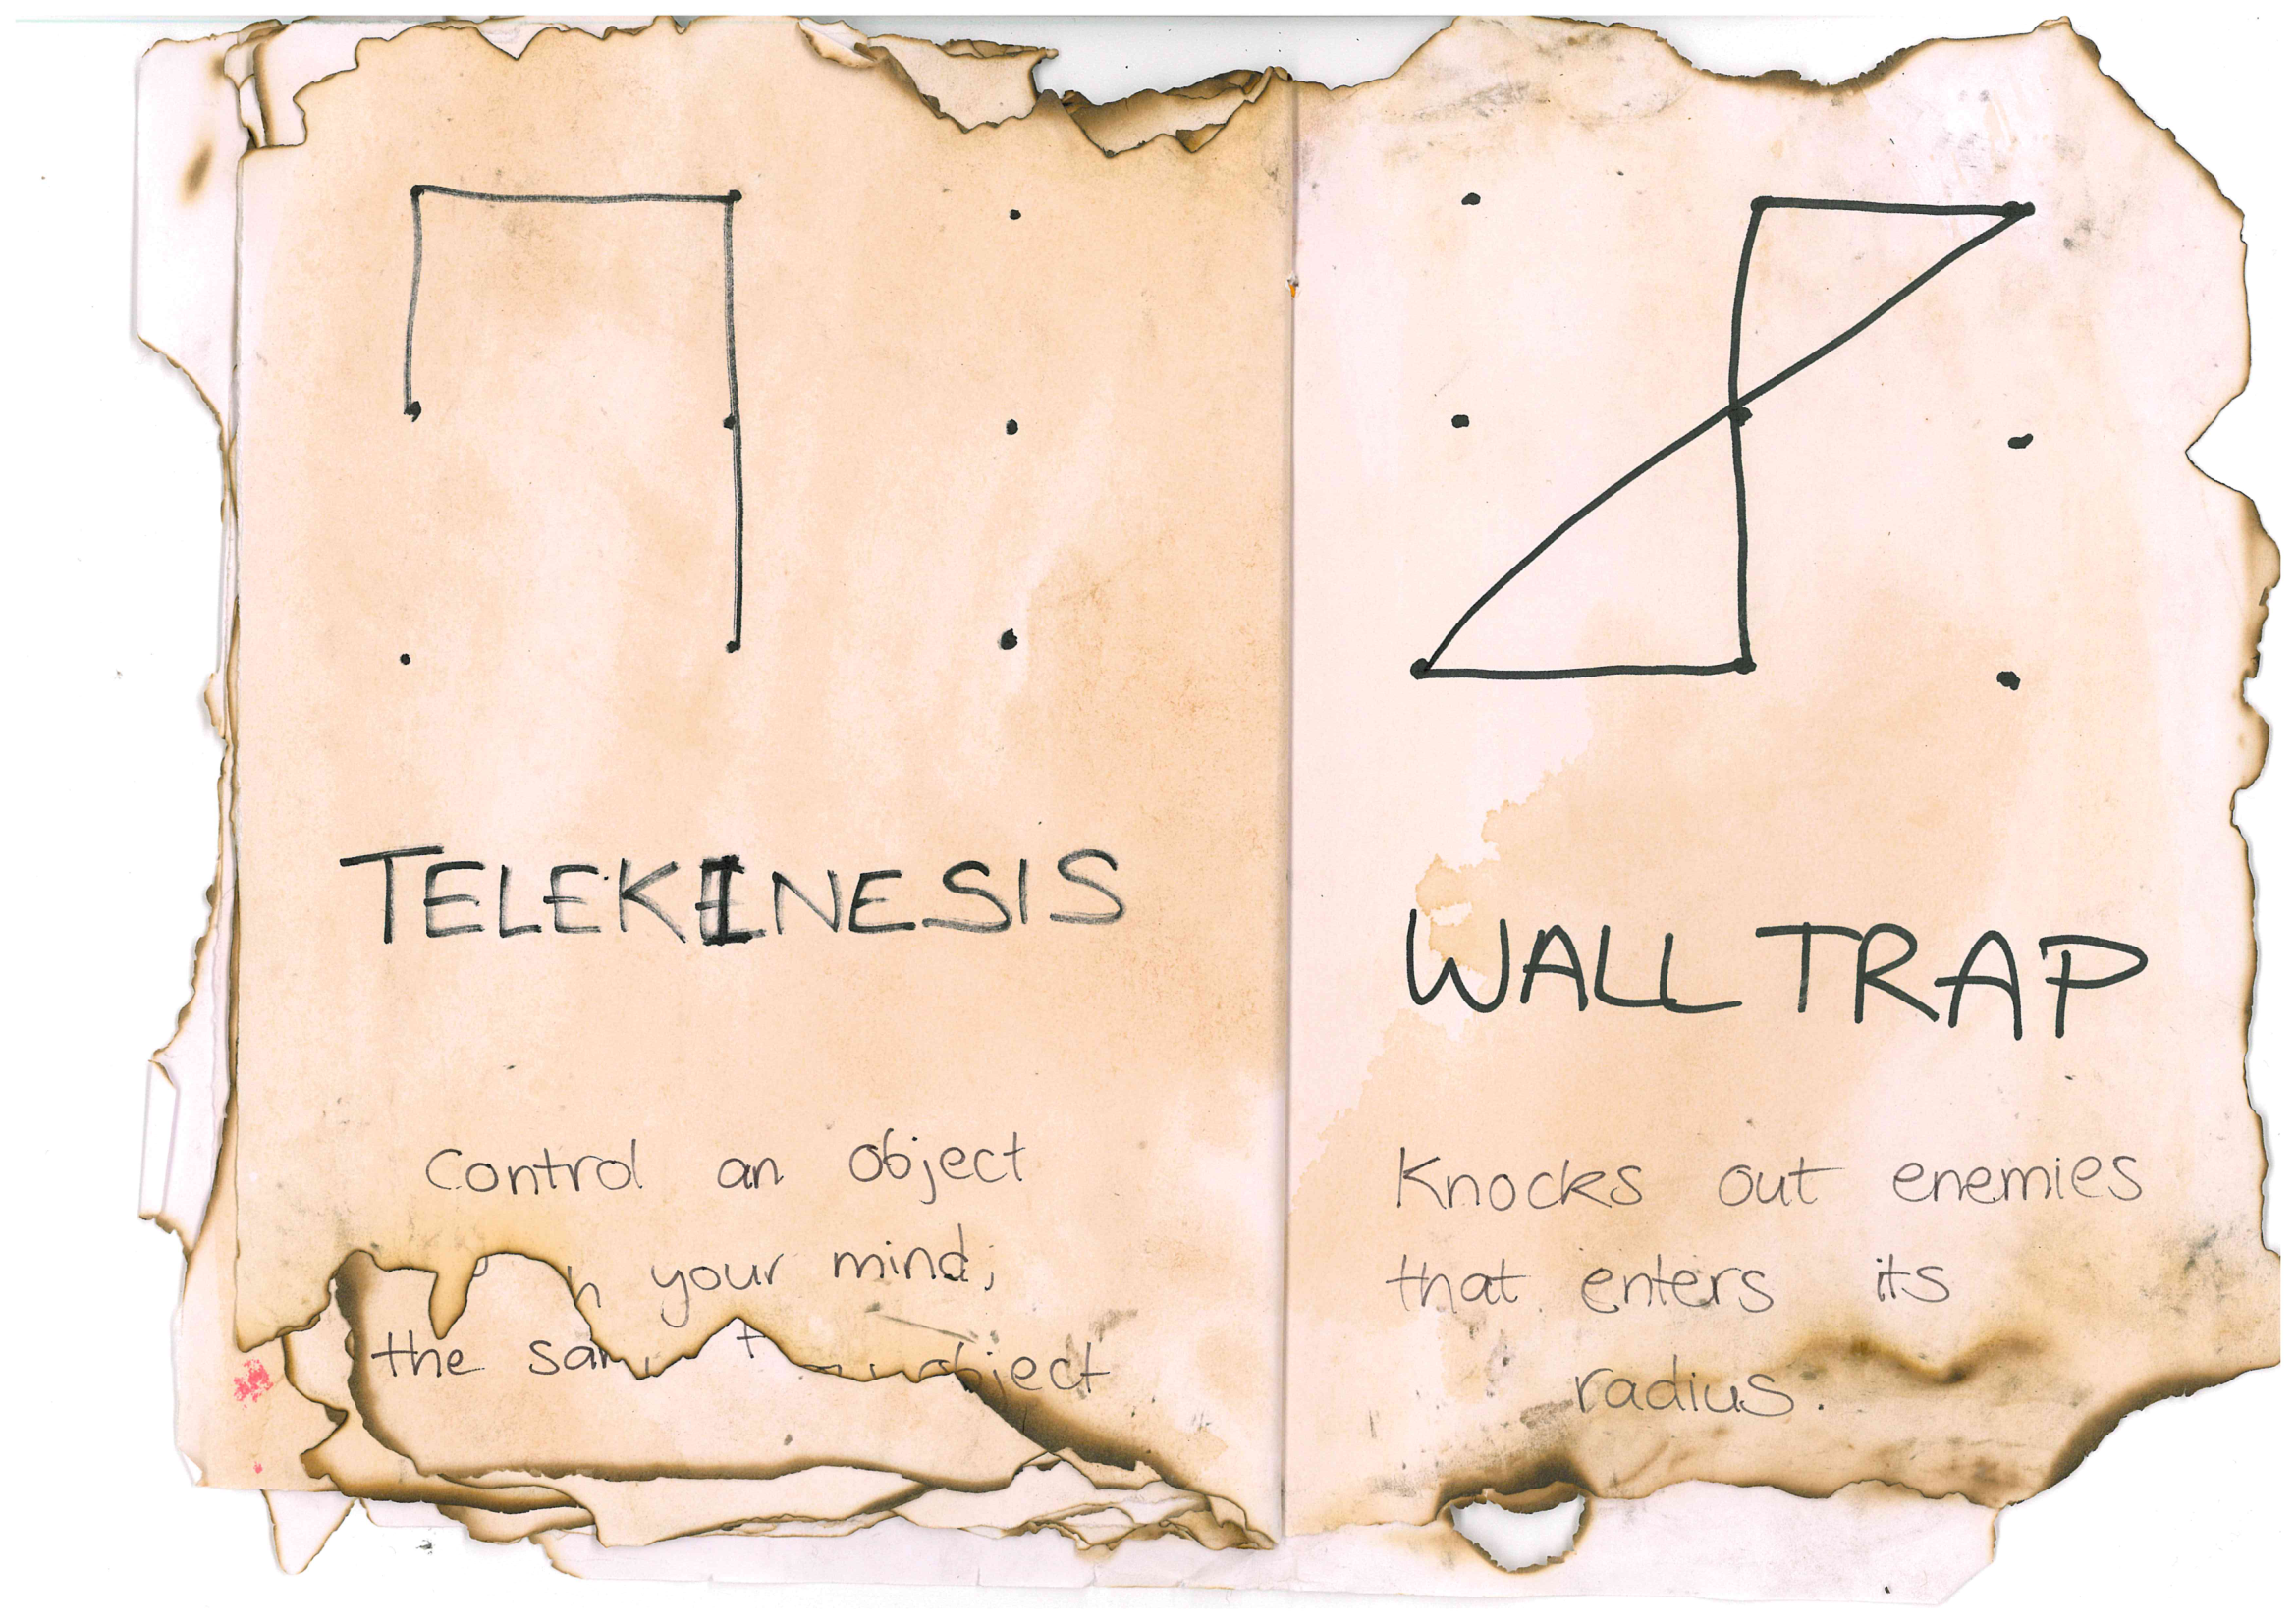 TELEKINESIS
Control an object
your mind;
the object
WALL TRAP
Knocks out enemies
that enters its
radius.